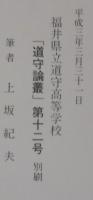 平成三年三月三十一日
福井県立道守高等学校
「道守論叢」第十二号 別刷
筆者 上坂紀夫